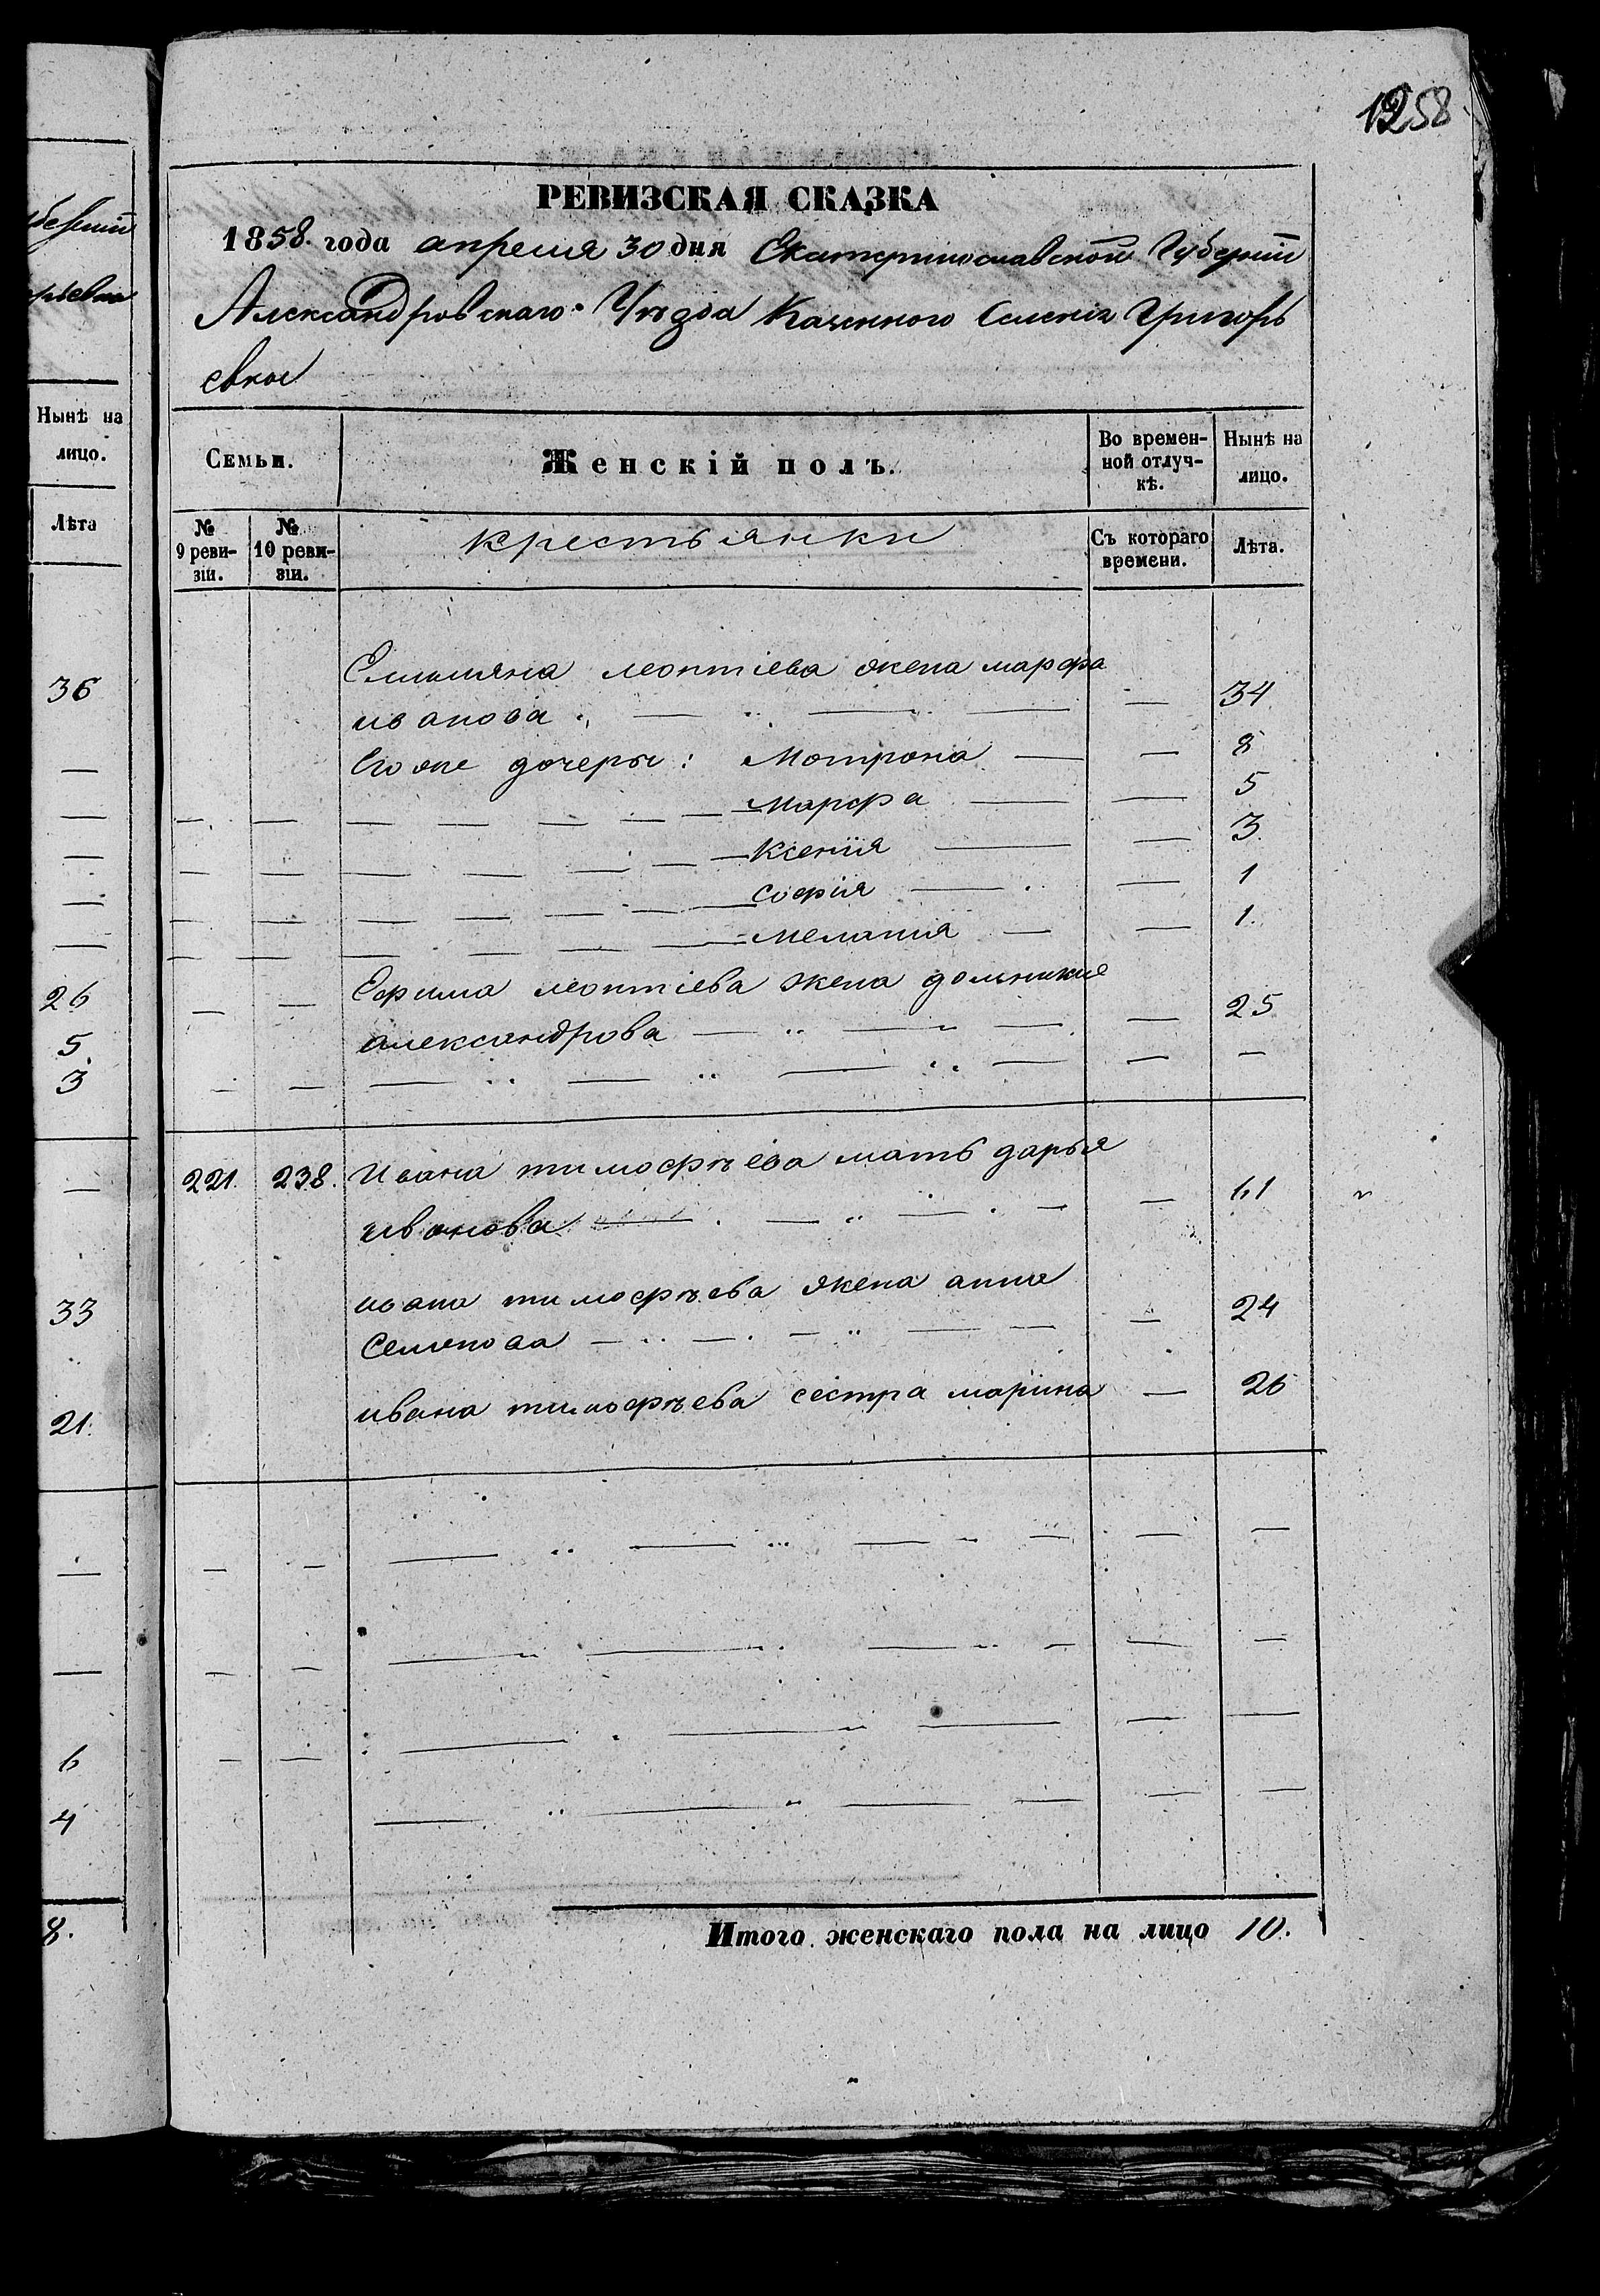 1258
беpнии
рьевка
Нынѣ на
лицо.
Лѣта
36
26
5.
3
33
21.
6
4
8.
РЕВИЗСКАЯ СКАЗКА
1858. года апреля 30 дня Екатеринославской Губернии
Александровскаго Уѣзда Казенного Селения Григорь
евки
Семьи.
Женскій полъ.
Во времен-
ной отлуч-
кѣ.
Нынѣ на
лицо.
№
9 реви-
зіи.
№
10 реви-
зіи.
крестьянки
Съ котораго
времени.
Лѣта.
Емельяна леонтіева жена марфа
иванова 34
Его же дочеры: Мотрона 8
Марфа 5
Ксенія 3.
софія 1
Мелания 1.
Ефима леонтіева жена домникия
александрова 25
221. 238. Ивана тимофѣева мать дарья
иванова 61
ивана тимофѣева жена анна
Семенова 24
ивана тимофѣева сестра марина 26
Итого женскаго пола на лицо 10.